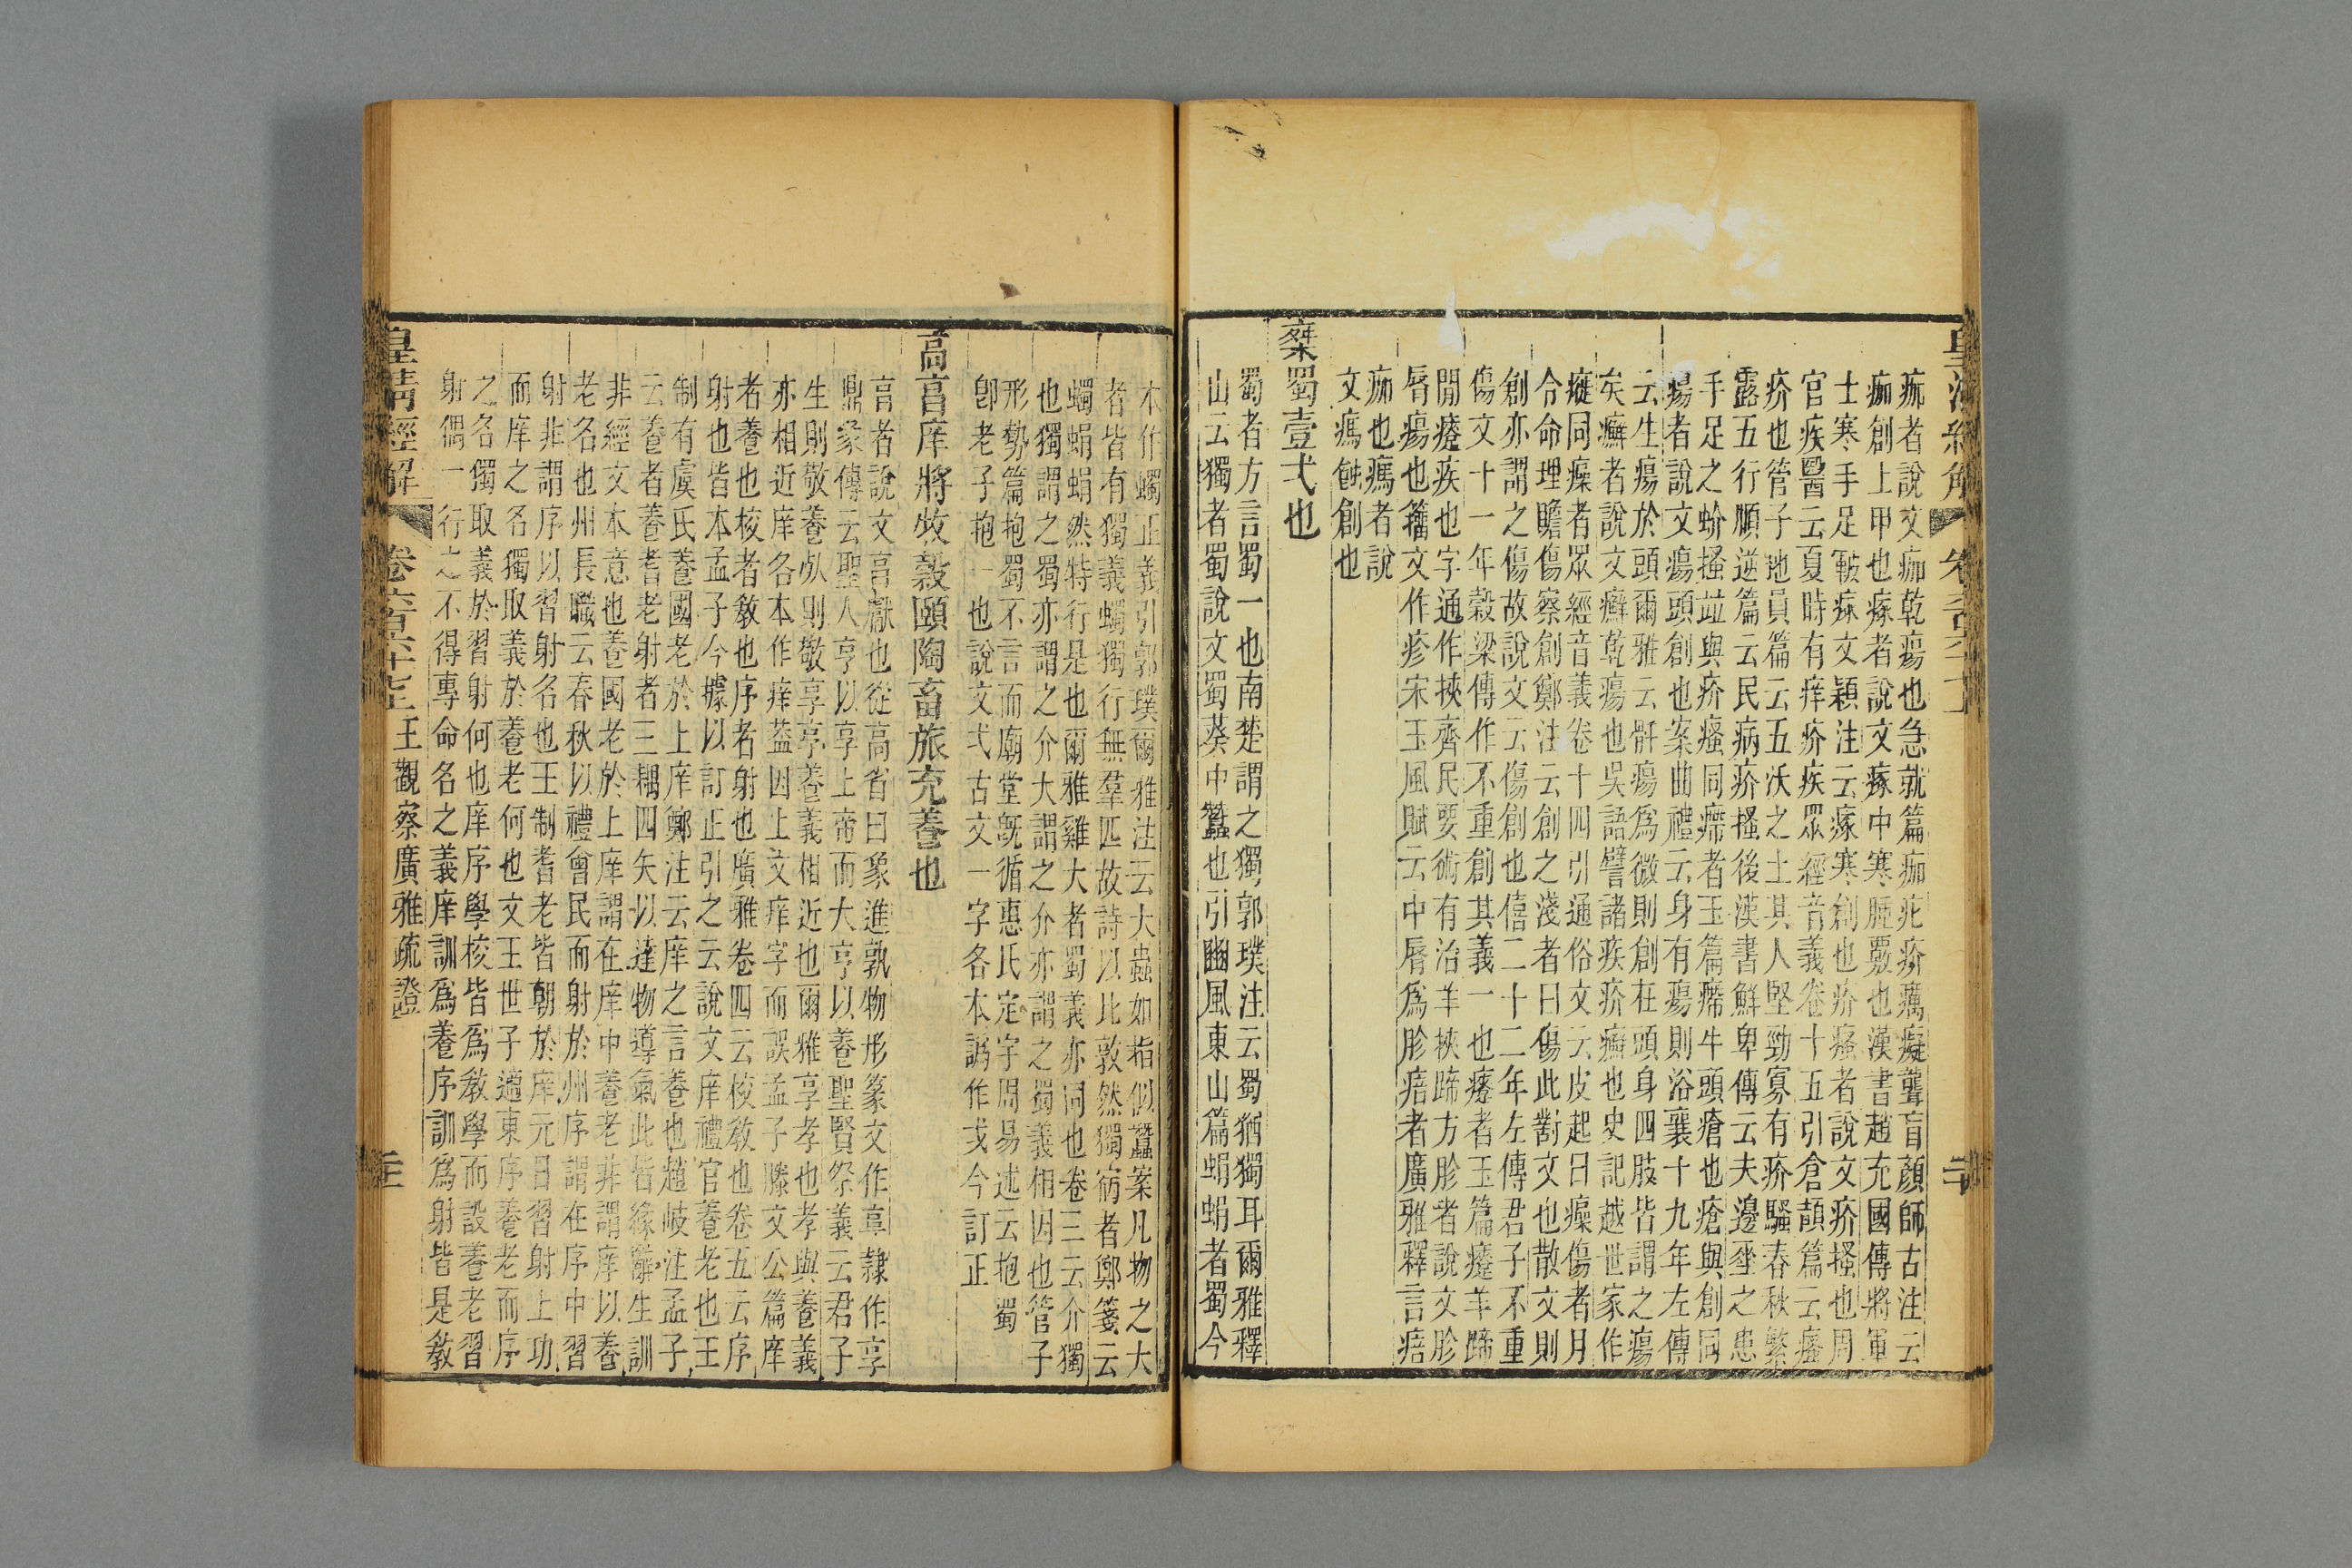 痂者說文痂乾瘍也急就篇痂疕疥癘癡聾盲顏師古注云
痂創上甲也瘃者說文瘃中寒腫覈也漢書趙充國傳將軍
士寒手足皸瘃文穎注云瘃寒創也疥瘙者說文疥搔也周
官疾醫云夏時有痒疥疾眾經音義卷十五引倉頡篇云瘙
疥也管子地員篇云五沃之土其人堅勁寡有疥騷春秋繁
露五行順逆篇云民病疥搔後漢書鮮卑傳云夫邊垂之患
手足之蚧搔竝與疥瘙同瘑者玉篇瘑牛頭瘡也瘡與創同
瘍者說文瘍頭創也案曲禮云身有瘍則浴襄十九年左傳
云生瘍於頭爾雅云骭瘍爲微則創在頭身四肢皆謂之瘍
矣癬者說文癬乾瘍也吳語譬諸疾疥癬也史記越世家作
㾕同瘙者眾經音義卷十四引通俗文云皮起曰瘙傷者月
令命理瞻傷察創鄭注云創之淺者曰傷此對文也散文則
創亦謂之傷故說文云傷創也僖二十二年左傳君子不重
傷文十一年穀梁傳作不重創其義一也瘘者玉篇瘘羊蹄
閒瘘疾也字通作挾齊民要術有治羊挾蹄方胗者說文胗
脣瘍也籀文作疹宋玉風賦云中脣爲胗痦者廣雅釋言痦
痂也瘑者說
文瘑蝕創也
桀蜀壹弌也
蜀者方言蜀一也南楚謂之獨郭璞注云蜀猶獨耳爾雅釋
山云獨者蜀說文蜀葵中蠶也引豳風東山篇蜎蜎者蜀今
本作蠋正義引郭璞爾雅注云大蟲如指似蠶案凡物之大
者皆有獨義蠋獨行無羣匹故詩以比敦然獨宿者鄭箋云
蠋蜎蜎然特行是也爾雅雞大者蜀義亦同也卷三云介獨
也獨謂之蜀亦謂之介大謂之介亦謂之蜀義相因也管子
形勢篇抱蜀不言而廟堂旣循惠氏定宇周易述云抱蜀
卽老子抱一也說文弌古文一字各本譌作戈今訂正
㐭亯庠將牧穀頤陶畜旅充養也
亯者說文亯獻也從高省曰象進孰物形篆文作亯隸作享
鼎彖傳云聖人亨以享上帝而大亨以養聖賢祭義云君子
生則敬養歿則敬享享養義相近也爾雅享孝也孝與養義
亦相近庠各本作痒葢因上文痒字而誤孟子滕文公篇庠
者養也校者敎也序者射也廣雅卷四云校敎也卷五云序
射也皆本孟子今據以訂正引之云說文庠禮官養老也王
制有虞氏養國老於上庠鄭注云庠之言養也趙岐注孟子
云養者養耆老射者三耦四矢以達物導氣此皆緣辭生訓
非經文本意也養國老於上庠謂在庠中養老非謂庠以養
老名也州長職云春秋以禮會民而射於州序謂在序中習
射非謂序以習射名也王制耆老皆朝於庠元日習射上功
而庠之名獨取義於養老何也文王世子適東序養老而序
之名獨取義於習射何也庠序學校皆爲敎學而設養老習
射偶一行之不得專命名之義庠訓爲養序訓爲射皆是敎
皇清經解 卷六百六十七上 王觀察廣雅疏證